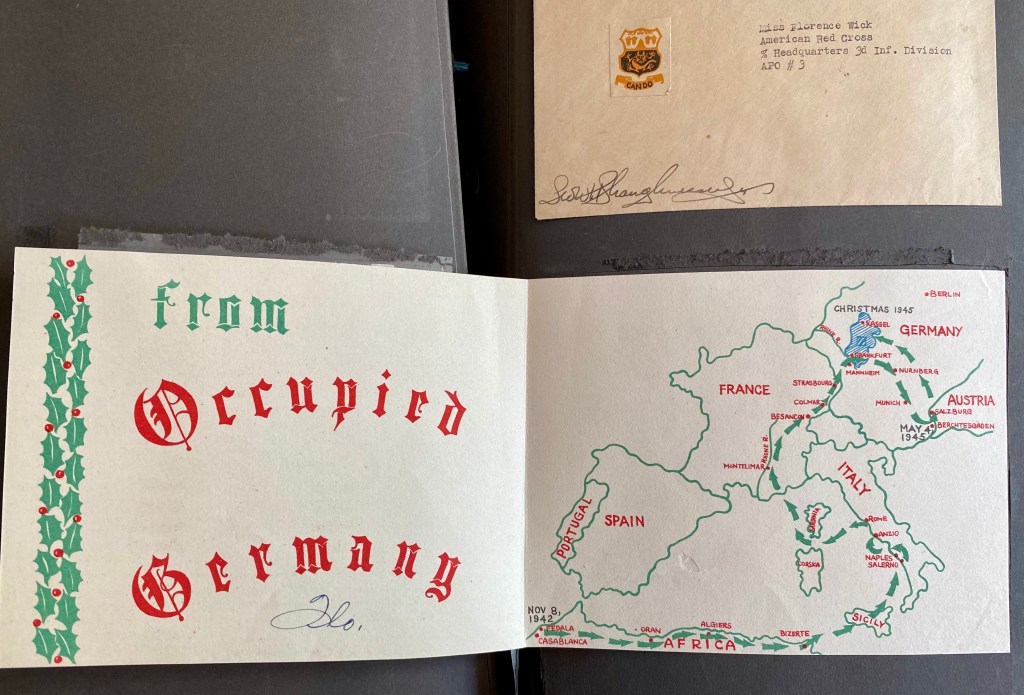 Miss Florence Wick
American Red Cross
% Headquarters 3d Inf. Division
APO # 3
CAN DO
From
Occupied
Germany
Flo.
BERLIN
CHRISTMAS 1945
KASSEL
GERMANY
RHINE R.
FRANKFURT
MANNHEIM
NURNBERG
FRANCE
STRASBOURG
COLMAR
MUNICH
AUSTRIA
SALZBURG
BESANCON
BERCHTESGADEN
MAY 4,
1945
RHONE R.
MONTELIMAR
ITALY
PORTUGAL
SPAIN
SARDINIA
ROME
ANZIO
CORSKA
NAPLES
SALERNO
NOV 8,
1942
SICILY
FEDALA
CASABLANCA
ORAN
ALGIERS
AFRICA
BIZERTE